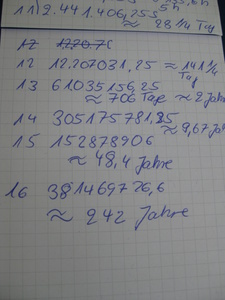 11) 2.441.406,25 s
≈ 28 1/4 Tag
12 1220.70
12 12.207031,25 ≈ 141 1/4
Tag
13 61035156,25
≈ 706 Tage ≈ 2 Jahre
14 305175781,25
≈ 9,67 Jahre
15 152878906
≈ 48,4 Jahre
16 381469726,6
≈ 242 Jahre